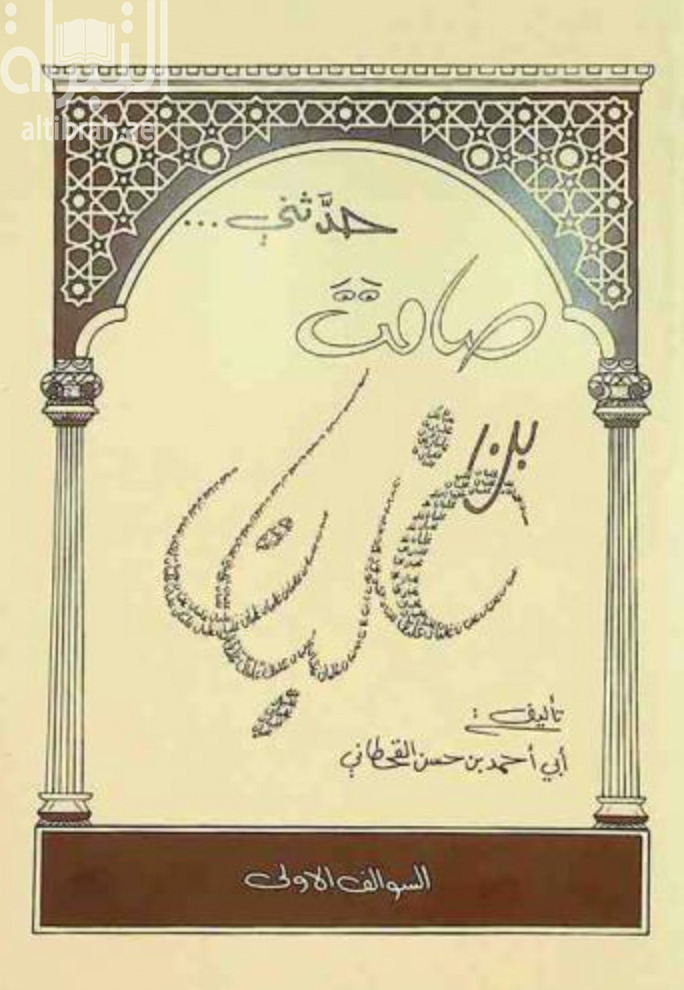 التبراه
altibrah.ae
حدَّثني...
صامت
بن
غليان
تأليف :
أبي أحمد بن حسن القحطاني
السوالف الاولى